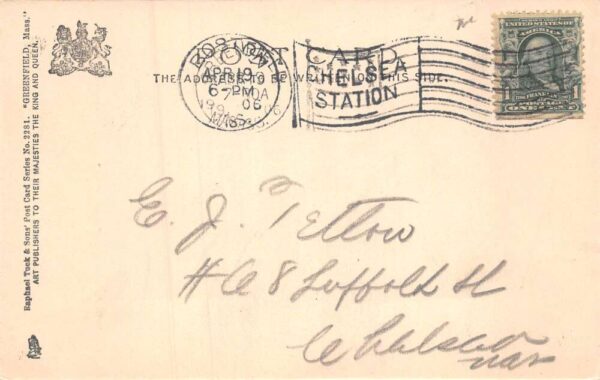 POST CARD
THE ADDRESS TO BE WRITTEN ON THIS SIDE.
BOSTON
APR 19
6 PM
1906
MASS.
CHELSEA
STATION
UNITED STATES OF
AMERICA
POSTAGE
1 ONE CENT 1
E. J. Tetlow
#68 Suffolk St
Chelsea
Mass
Raphael Tuck & Sons' Post Card Series No. 2281. "GREENFIELD, Mass."
ART PUBLISHERS TO THEIR MAJESTIES THE KING AND QUEEN.